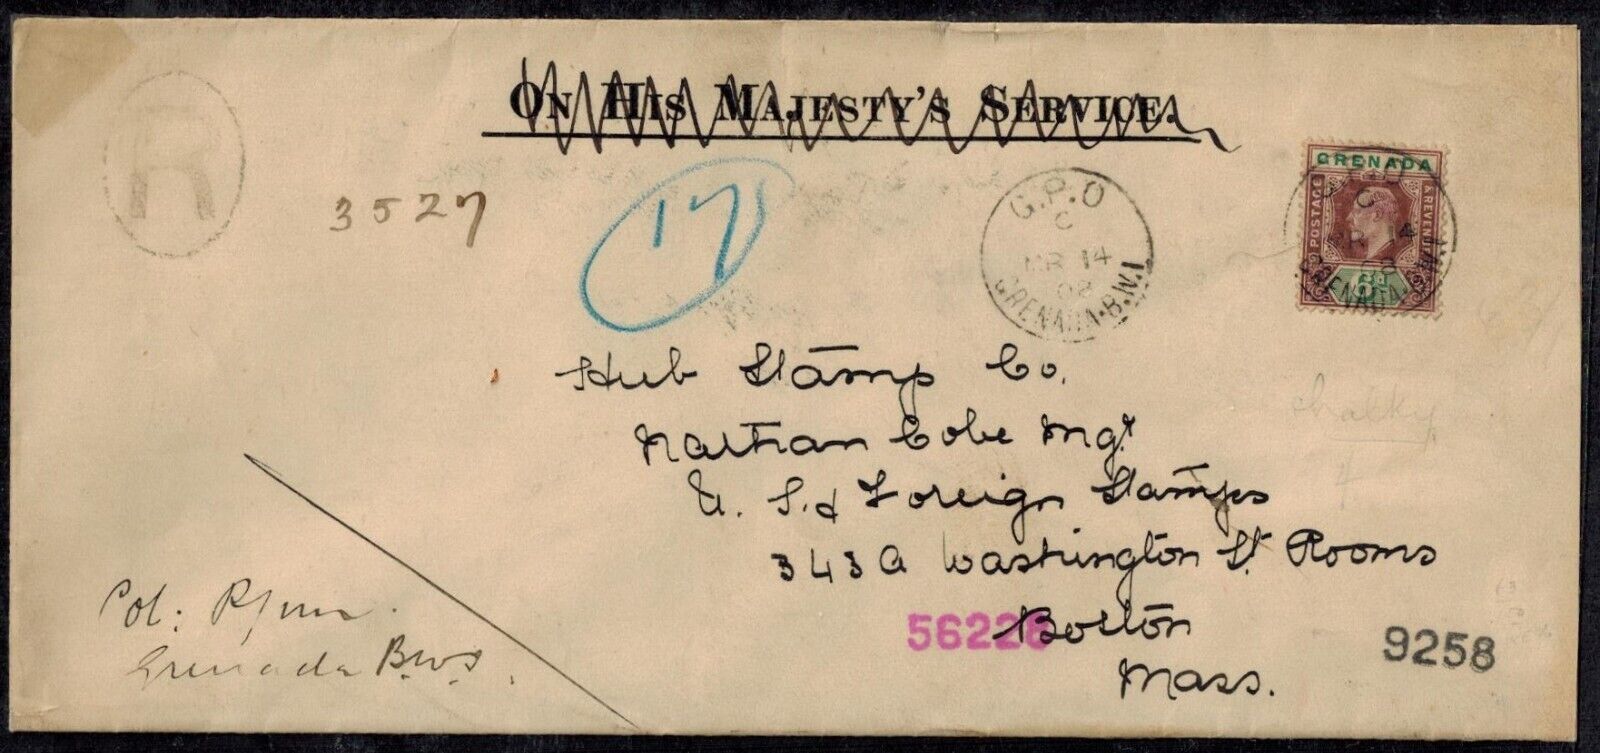 ON HIS MAJESTY'S SERVICE.
R
3527
17
G.P.O
C
MR 14
GRENADA.B.W.I
GRENADA
POSTAGE & REVENUE
6d
Hub Stamp Co.
Nathan Cobe Mgr
U. S. & Foreign Stamps
343A Washington St. Rooms
Boston
Mass.
56226
9258
Col:
Grenada B.W.I.
chalky